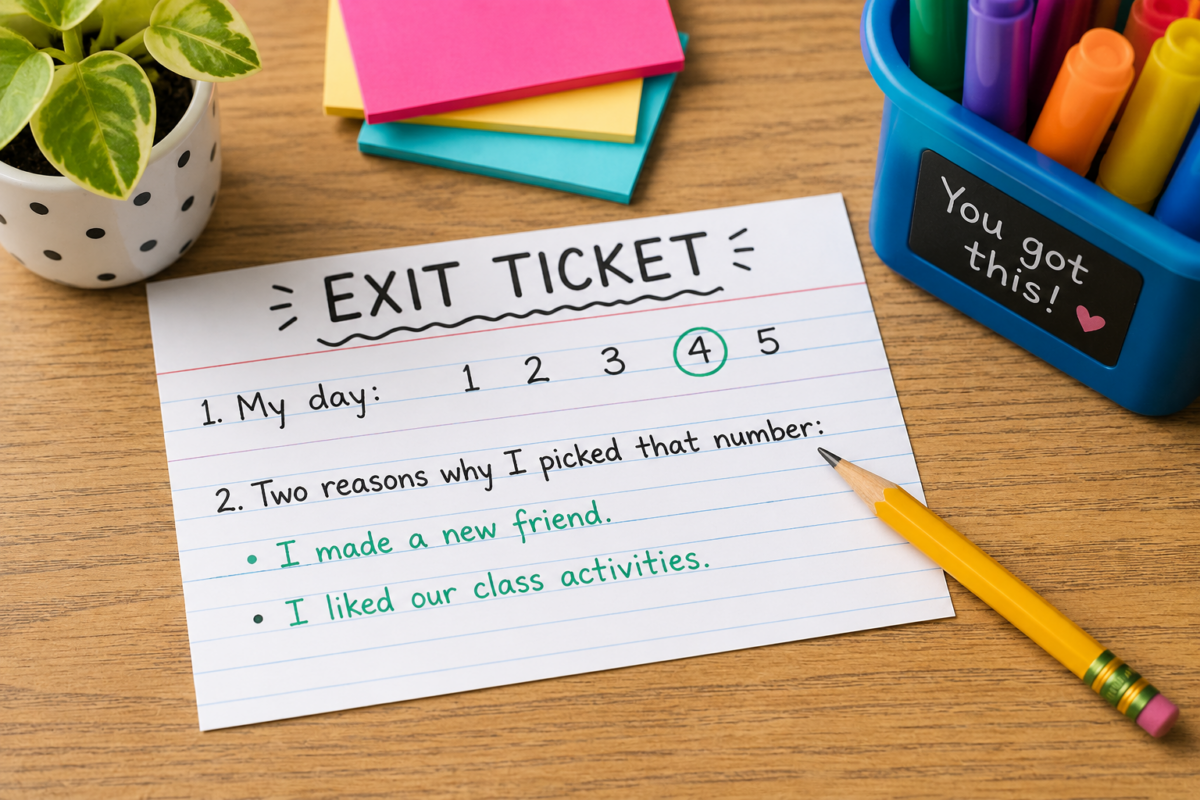 EXIT TICKET
1. My day: 1 2 3 4 5
2. Two reasons why I picked that number:
• I made a new friend.
• I liked our class activities.
You got
this!